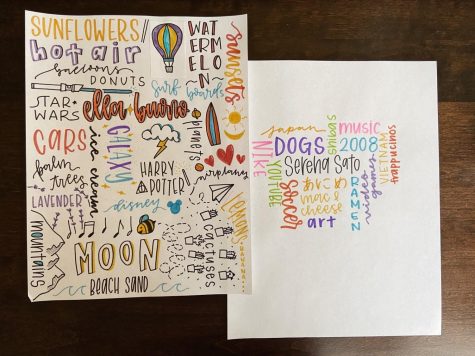 SUNFLOWERS
hot air
balloons
DONUTS
WATERMELON
sunsets
surf boards
STAR WARS
ella bueno
CARS
ice cream
GALAXY
planets
palm trees
HARRY POTTER!
airplanes
LAVENDER
disney
lemons
BANANA
mountains
MOON
cactuses
BEACH SAND
japan
shibas
music
NIKE
DOGS
2008
VIETNAM
frappucinos
YOUTUBE
Serena Sato
soccer
mac & cheese
RAMEN
video games
art